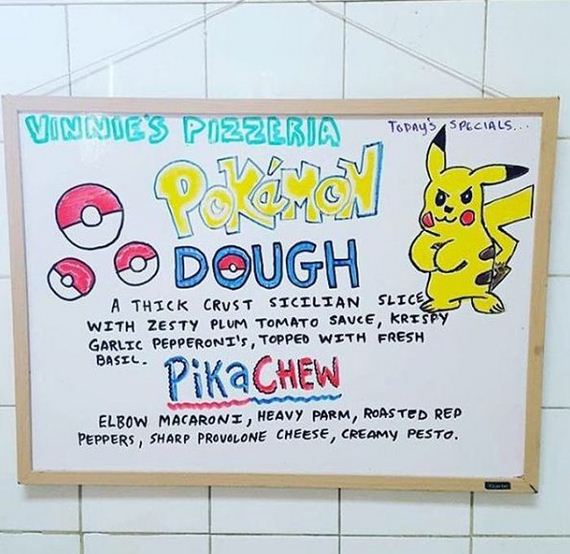 VINNIE'S PIZZERIA
TODAY'S SPECIALS...
POKéMON
DOUGH
A THICK CRUST SICILIAN SLICE
WITH ZESTY PLUM TOMATO SAUCE, KRISPY
GARLIC PEPPERONI'S, TOPPED WITH FRESH
BASIL.
PiKaCHEW
ELBOW MACARONI, HEAVY PARM, ROASTED RED
PEPPERS, SHARP PROVOLONE CHEESE, CREAMY PESTO.